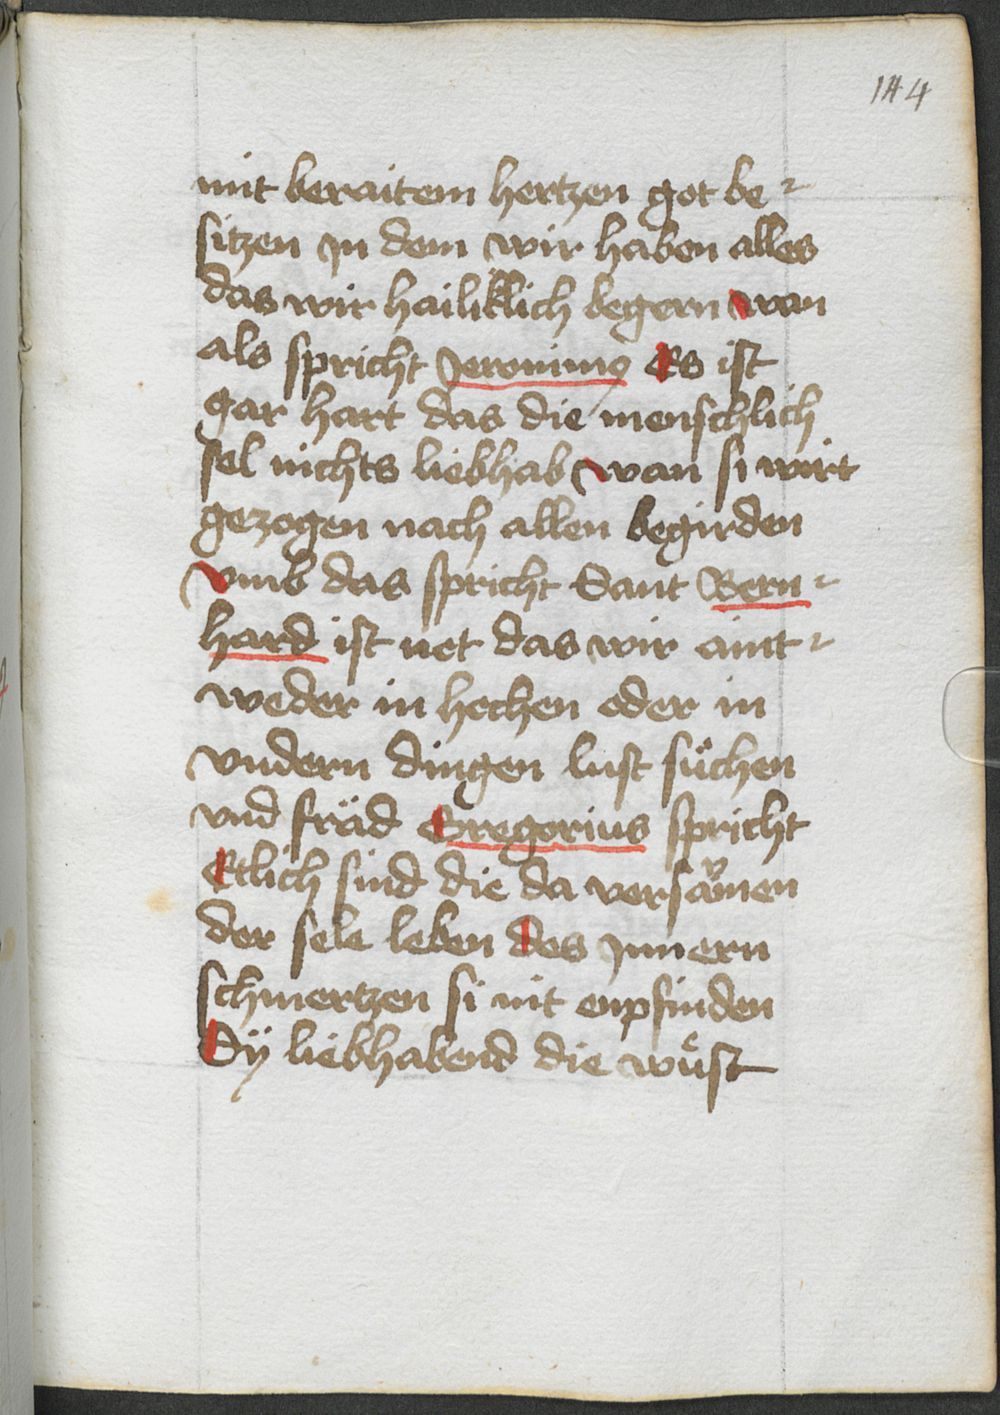 114
mit beraitem hertzen got be
sitzen Jn dem wir haben alles
das wir hailiklich begern wan
als spricht Jeronimꝰ Es ist
gar hart das die menschlich
sel nichts liebhab wan si wirt
gezogen nach allen begirden
vmb das spricht Sant Bern
hard ist net das wir aint
weder in hochen oder in
vndern dingen lust suͤchen
vnd fräd Gregorius spricht
Etlich sind die da versaͮmen
der sele leben des Jnnern
schmertzen si nit enpfinden
Dÿ liebhabend die wuͤst